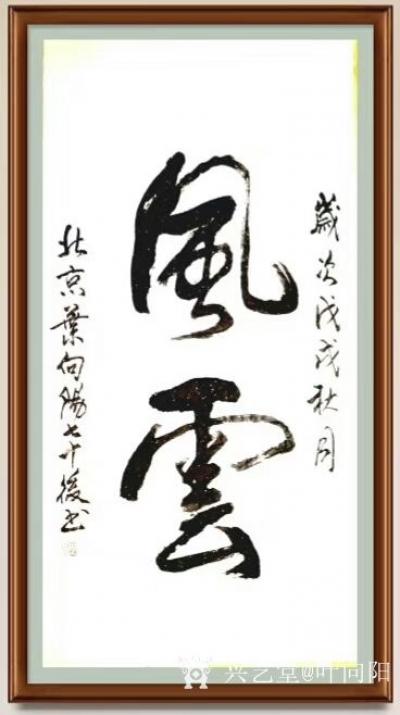 歲次戊戌秋月
風雲
北京葉向陽七十後書
兴艺堂@叶向阳